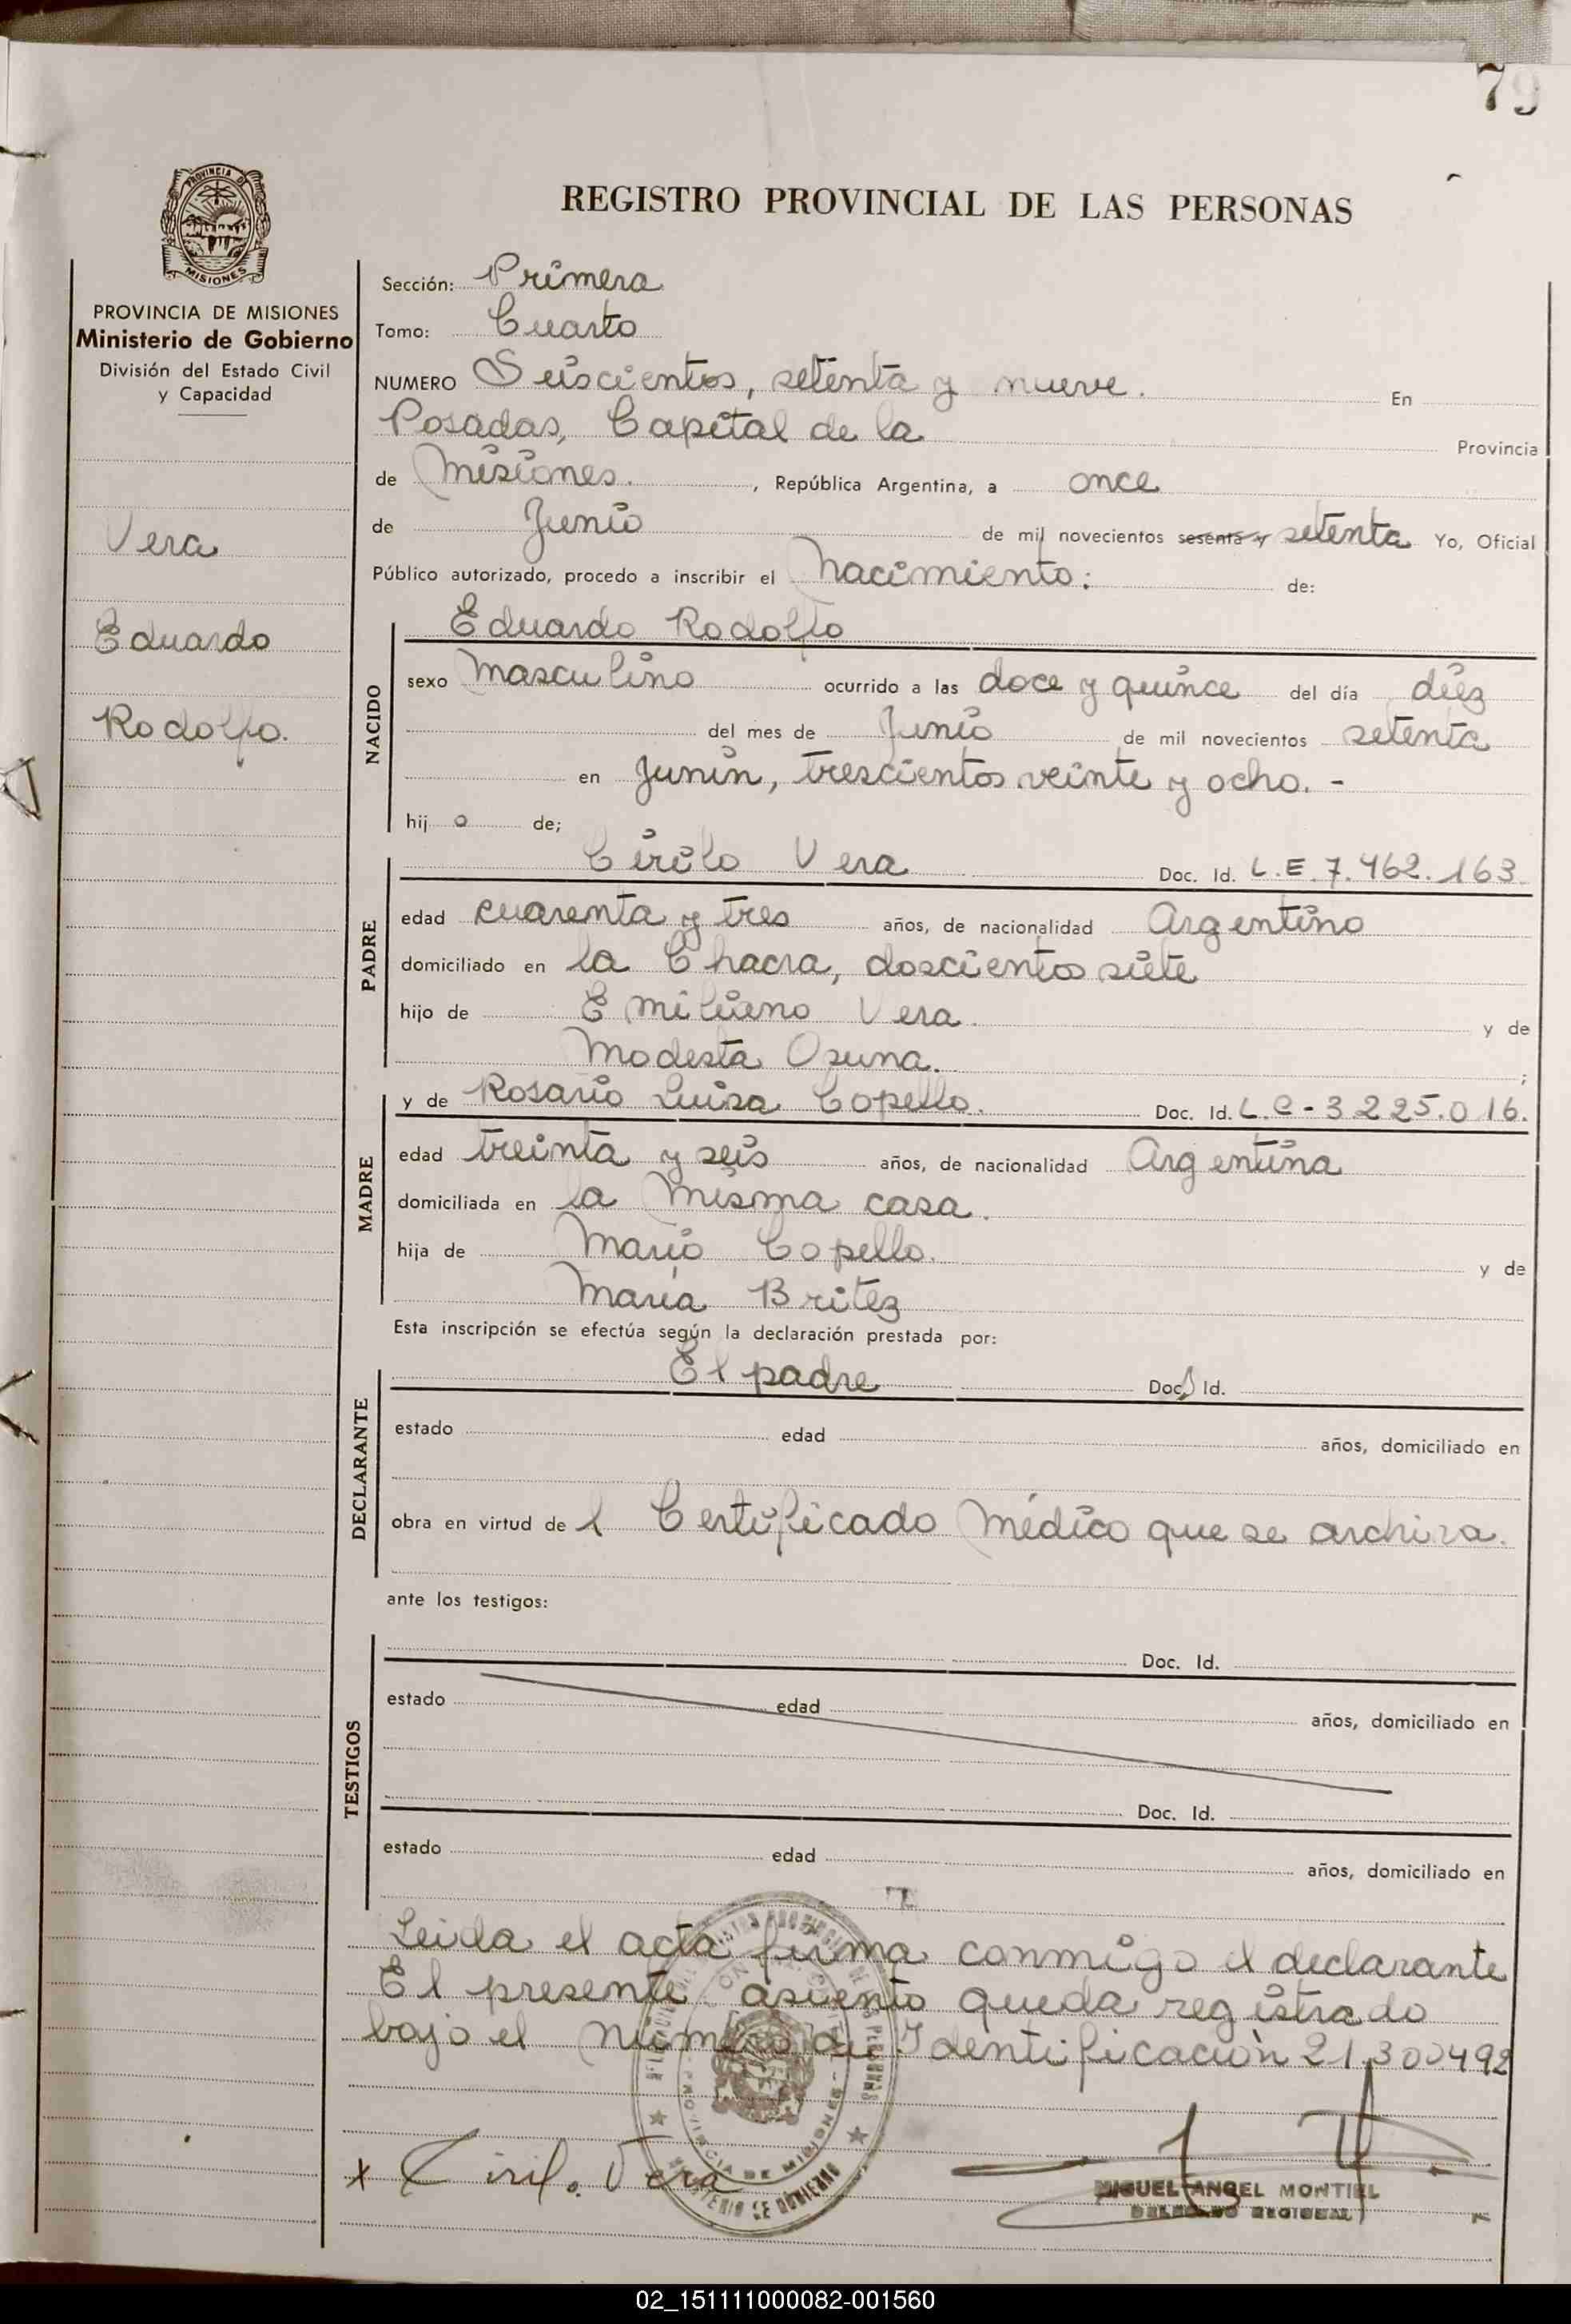 79
REGISTRO PROVINCIAL DE LAS PERSONAS
PROVINCIA DE MISIONES
PROVINCIA DE MISIONES
Ministerio de Gobierno
División del Estado Civil
y Capacidad
Vera
Eduardo
Rodolfo.
Sección: Primera
Tomo: Cuarto
NUMERO Seiscientos, setenta y nueve. En
Posadas, Capital de la Provincia
de Misiones. , República Argentina, a once
de Junio de mil novecientos sesenta y setenta Yo, Oficial
Público autorizado, procedo a inscribir el Nacimiento: de:
NACIDO
Eduardo Rodolfo
sexo Masculino ocurrido a las doce y quince del día diez
del mes de Junio de mil novecientos setenta
en Junín, trescientos veinte y ocho. -
hij o de;
PADRE
Cirilo Vera Doc. Id. L.E. 7.462.163
edad cuarenta y tres años, de nacionalidad Argentino
domiciliado en la Chacra, doscientos siete
hijo de Emiliano Vera y de
Modesta Osuna. ;
MADRE
y de Rosario Luisa Copello. Doc. Id. L.C-3225.016.
edad treinta y seis años, de nacionalidad Argentina
domiciliada en la misma casa.
hija de Mario Copello. y de
María Britez
Esta inscripción se efectúa según la declaración prestada por:
DECLARANTE
El padre Doc. Id.
estado edad años, domiciliado en
obra en virtud de l Certificado Médico que se archiva.
ante los testigos:
TESTIGOS
Doc. Id.
estado edad años, domiciliado en
Doc. Id.
estado edad años, domiciliado en
Leida el acta firma conmigo el declarante
El presente asiento queda registrado
bajo el número de Identificación 21.300492
x Cirilo Vera
MIGUEL ANGEL MONTIEL
DELEGADO REGIONAL
PROVINCIA DE MISIONES
MINISTERIO DE GOBIERNO
02_151111000082-001560